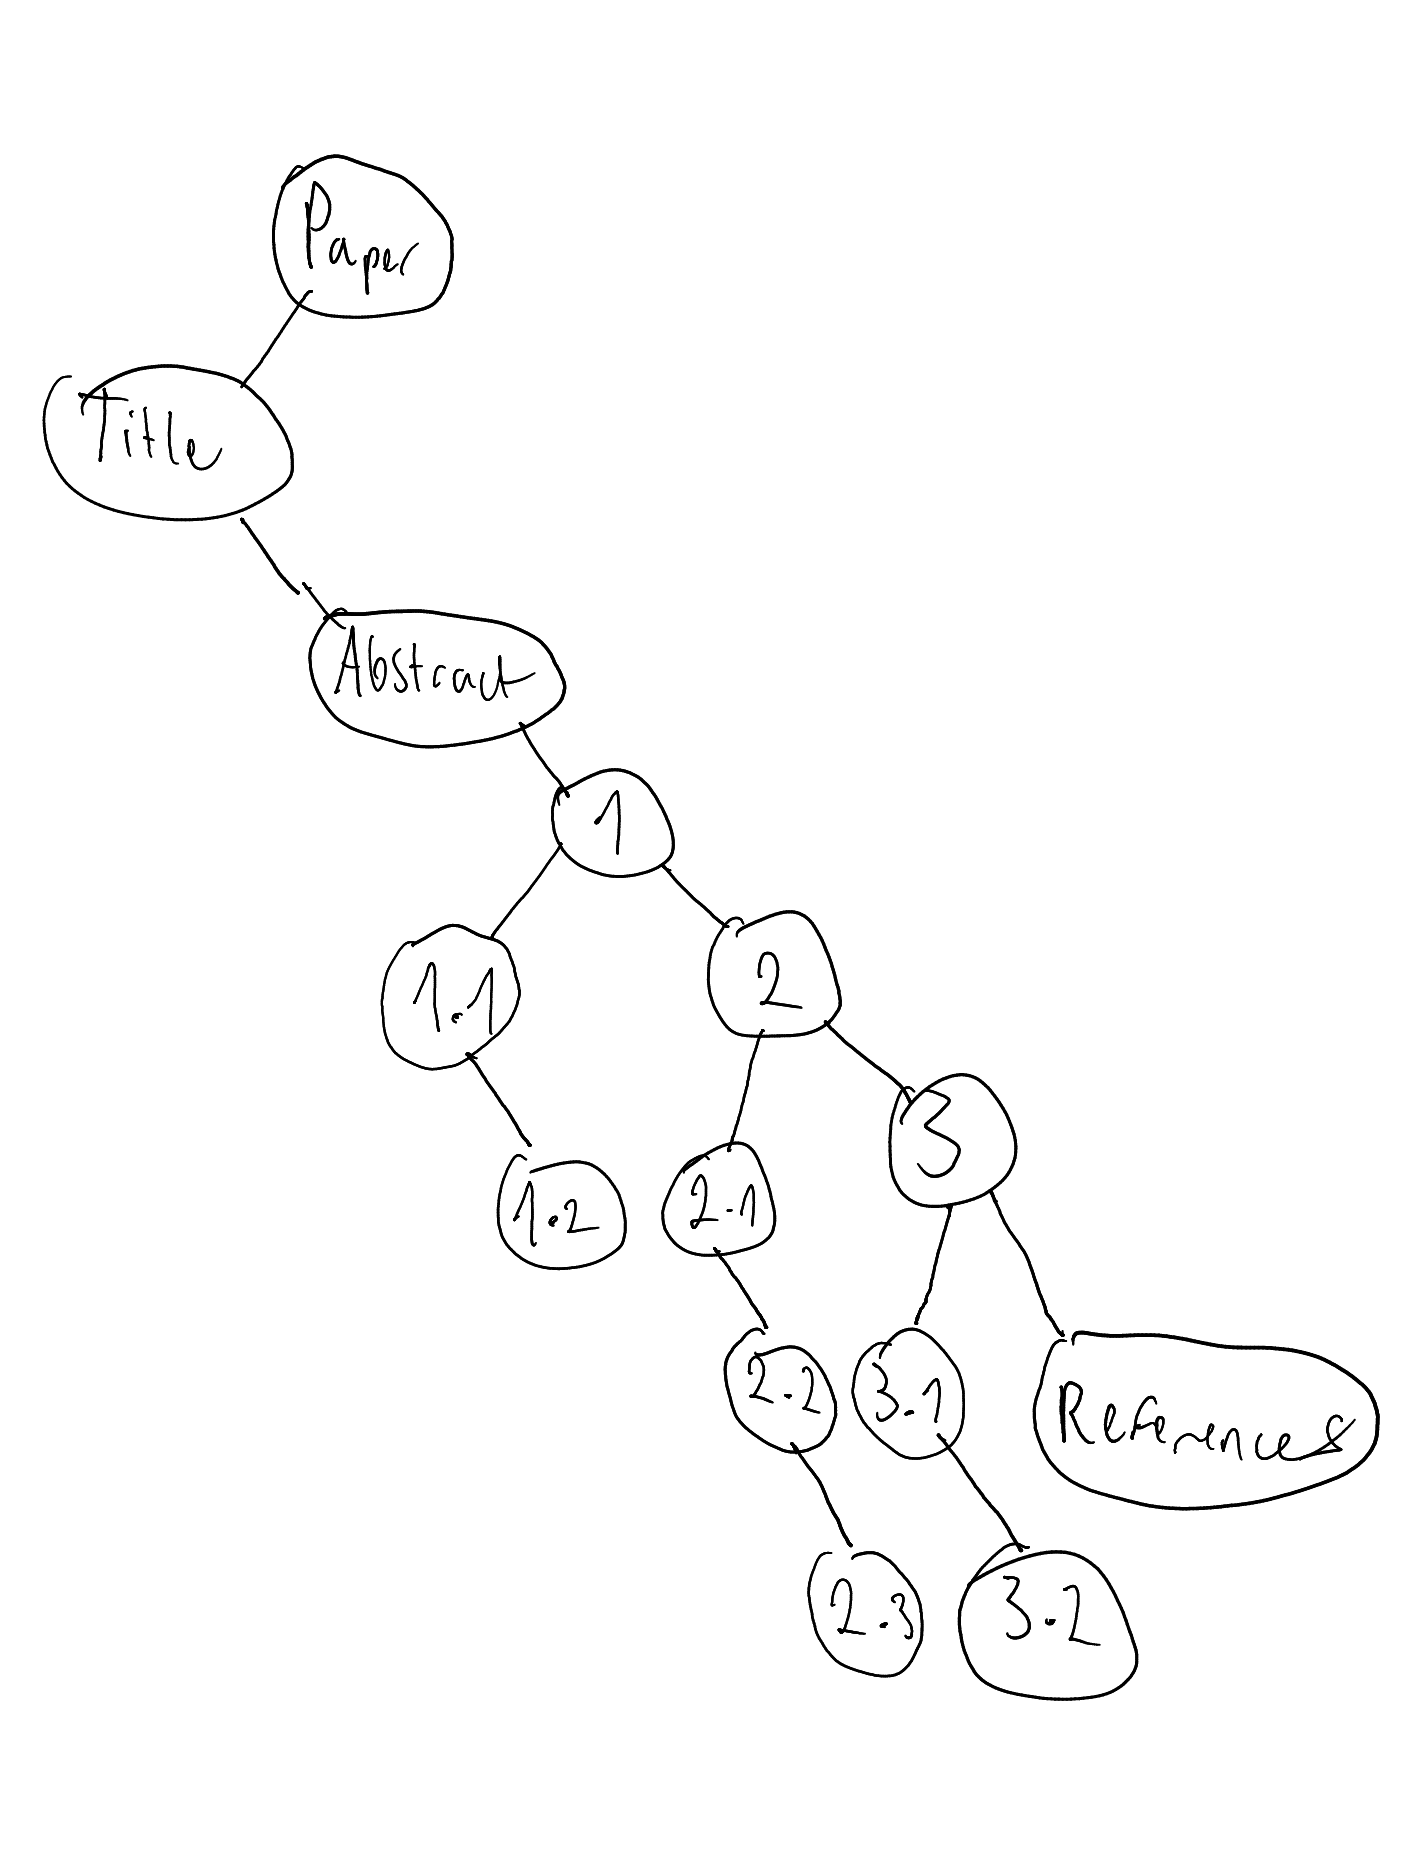 Paper
Title
Abstract
1
1.1
2
1.2
2.1
3
2.2
3.1
References
2.3
3.2